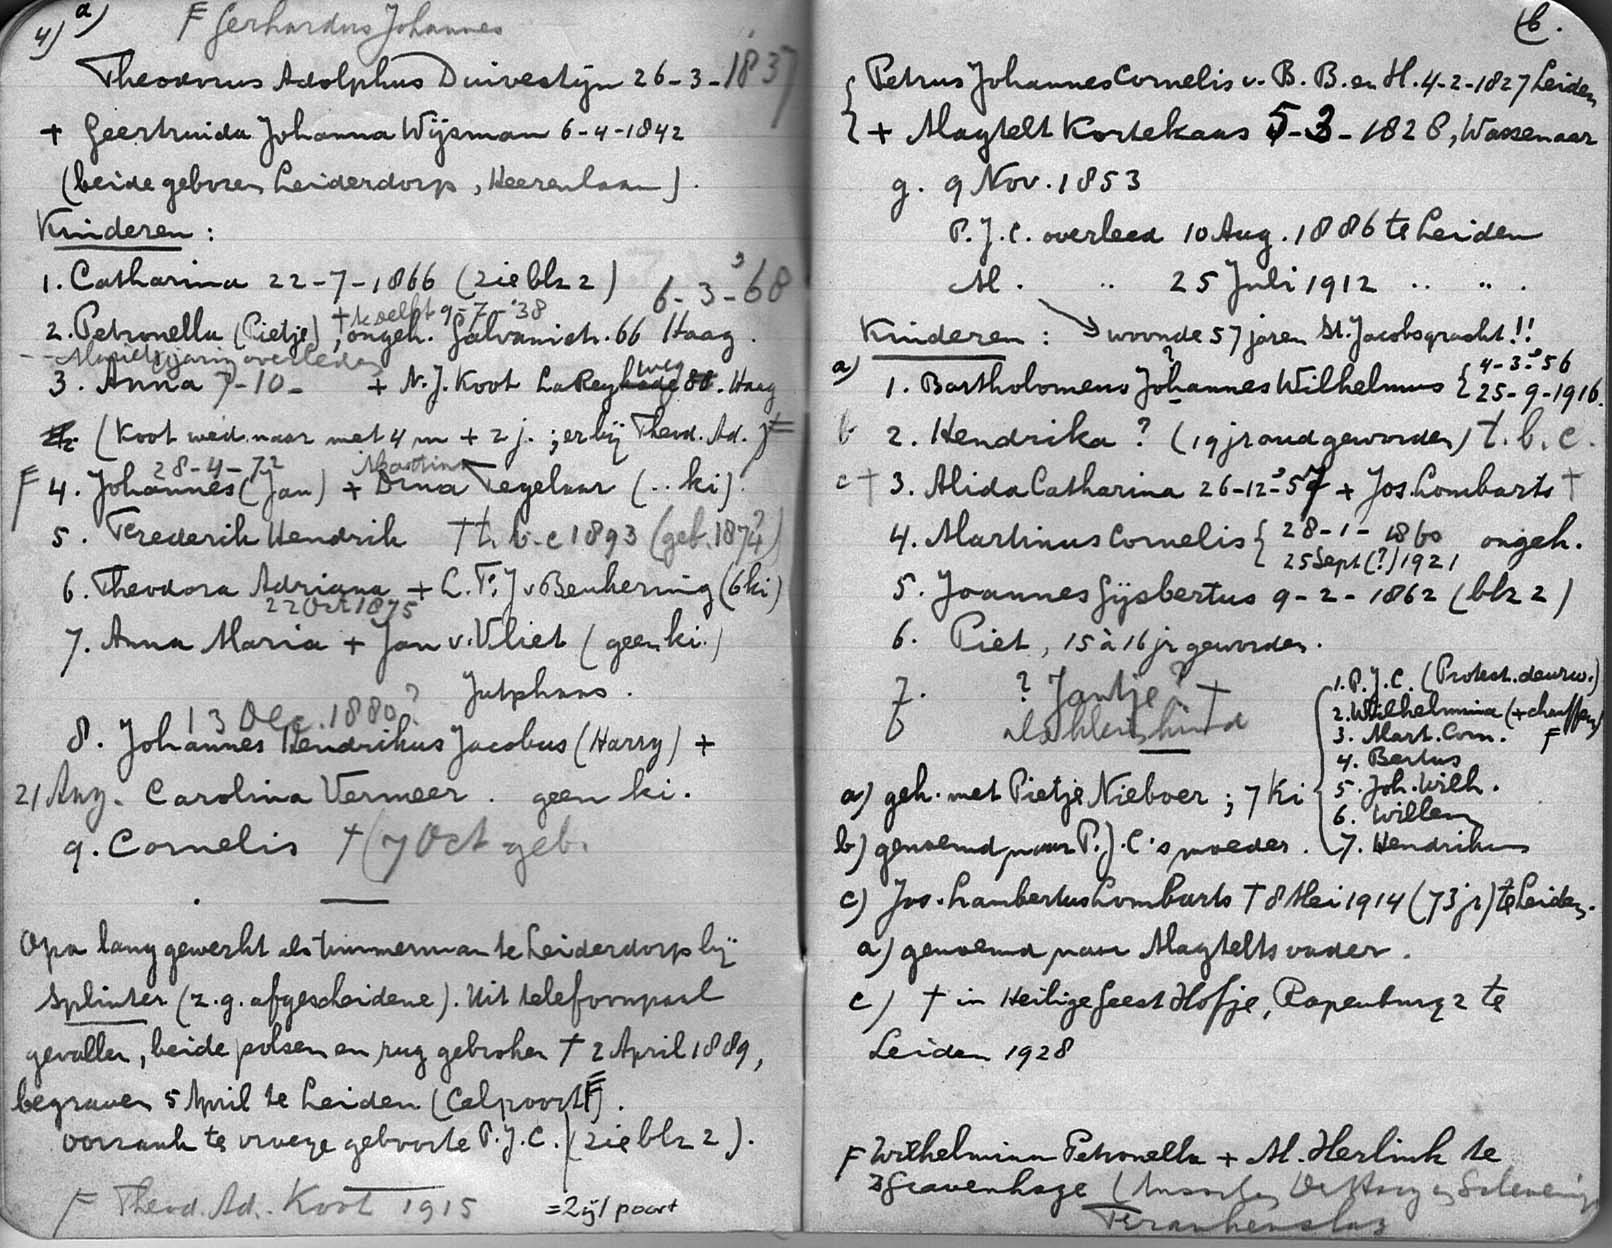 4) a)
F Gerhardus Johannes
Theodorus Adolphus Duivestijn 26-3-1837
+ Geertruida Johanna Wijsman 6-4-1842
(beide geboren Leiderdorp, Heerenlaan).
Kinderen:
1. Catharina 22-7-1866 (zie blz 2) 6-3-'68
+ te Delft 9-7-'38
2. Petronella (Pietje), ongeh. Galvanistr. 66 Haag.
overleden
3. Anna 7-10- + N.J. Koot LaReyweg 88. Haag
(Koot wed.naar met 4 m + 2 j.; er bij Theod. Ad. F
28-4-72 Martina
F 4. Johannes (Jan) + Dina Tegelaar (.. ki).
5. Frederik Hendrik † t.b.c 1893 (geb. 1874?)
6. Theodora Adriana + C.F.J v Beukering (6 ki)
22 Oct 1875
7. Anna Maria + Jan v. Vliet (geen ki.)
Jutphaas.
13 Dec. 1880?
8. Johannes Hendrikus Jacobus (Harry) +
21 Aug. Carolina Vermeer. geen ki.
9. Cornelis † (7 Oct geb.
Opa lang gewerkt als timmerman te Leiderdorp bij
Splinter (z.g. afgescheidene). Uit telefoonpaal
gevallen, beide polsen en rug gebroken † 2 April 1889,
begraven 5 April te Leiden (Celpoort F).
oorzaak te vroege geboorte P.J.C. (zie blz 2).
F Theod. Ad. Koot 1915
= Zijlpoort
b.
Petrus Johannes Cornelis v. B. B. en H. 4-2-1827 Leiden
+ Magtelt Kortekaas 5-3-1828, Wassenaar
g. 9 Nov. 1853
P.J.C. overleed 10 Aug. 1886 te Leiden
M. " 25 Juli 1912 " " .
Kinderen: woonde 57 jaren St. Jacobsgracht!!
a) 1. Bartholomeus Johannes Wilhelmus { 4-3-'56
25-9-1916.
b 2. Hendrika ? (19 jr oud geworden) t.b.c.
c † 3. Alida Catharina 26-12-'57 + Jos. Lombarts †
4. Martinus Cornelis { 28-1-1860 ongeh.
25 Sept (?) 1921
5. Joannes Gijsbertus 9-2-1862 (blz 2)
6. Piet, 15 à 16 jr geworden.
7. ? Jantje? †
als klein kind
1. P.J.C. (Protest. deurw.)
2. Wilhelmina (+ chauffeur)
3. Mart. Corn. F
4. Bertus
5. Joh. Wilh.
6. Willem
7. Hendrikus
a) geh. met Pietje Nieboer; 7 ki
b) genoemd naar P.J.C's moeder.
c) Jos. Lambertus Lombarts † 8 Mei 1914 (73 jr) te Leiden.
a) genoemd naar Magtelts vader.
c) † in Heilige Geest Hofje, Papenburg 2 te
Leiden 1928
F Wilhelmina Petronella + M. Herlink te
's Gravenhage ( Den Haag en Scheveningen
Frankenslag